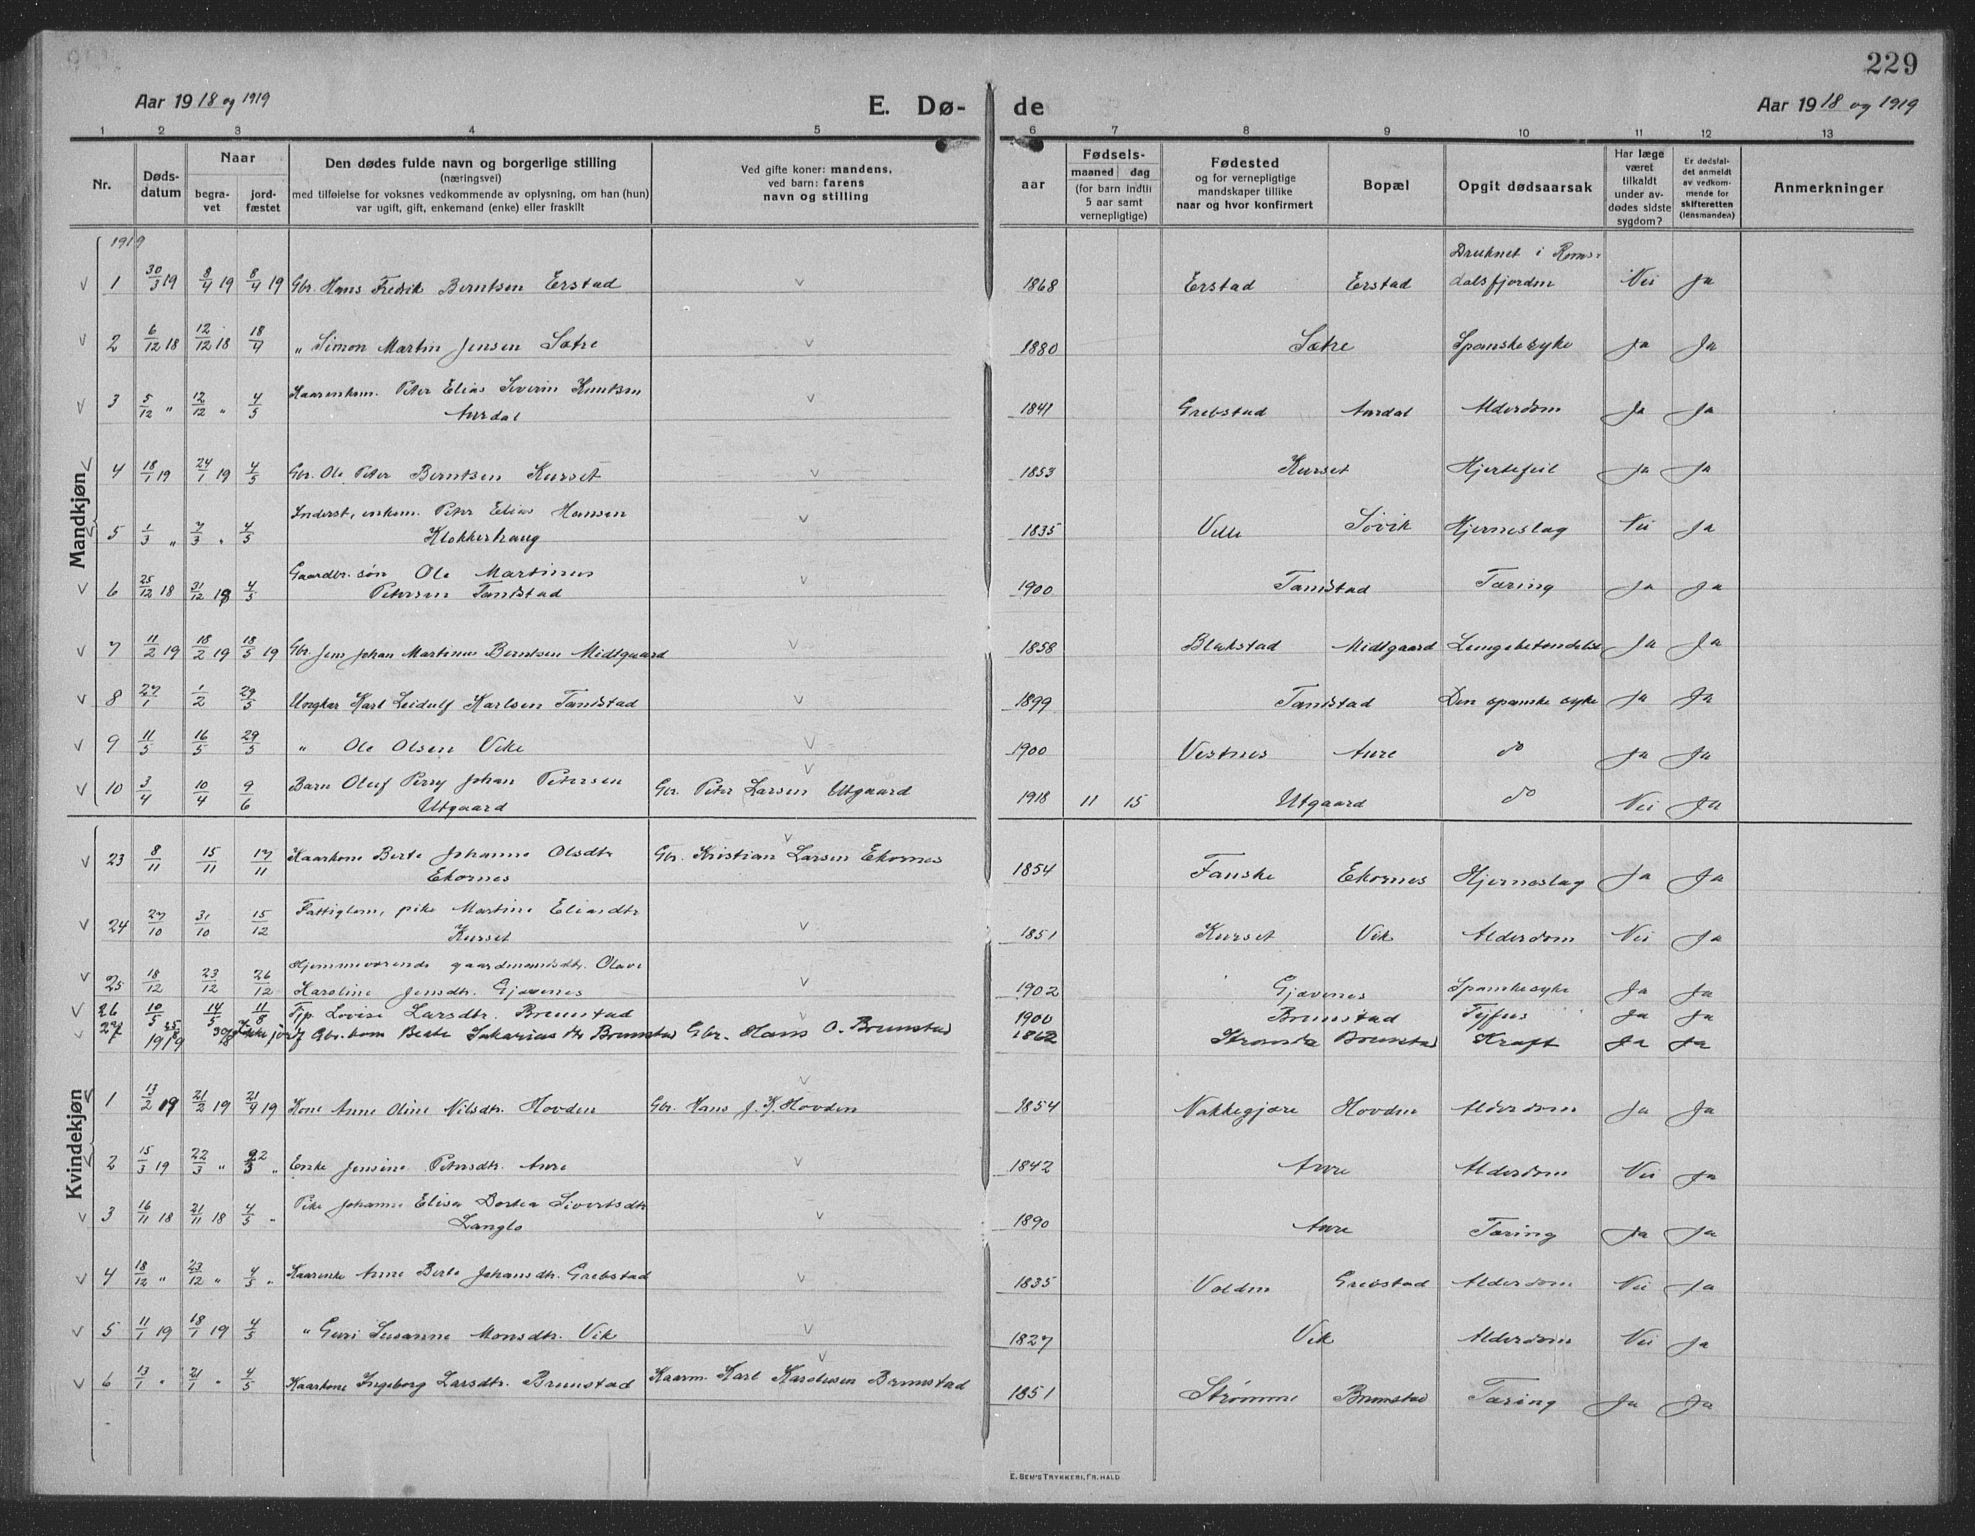 229
Aar 1918 og 1919 E. Dø- de Aar 1918 og 1919
1 2 3 4 5 6 7 8 9 10 11 12 13
Nr. Døds-datum Naar begra-vet jord-fæstet Den dødes fulde navn og borgerlige stilling (næringsvei) med tilføielse for voksnes vedkommende av oplysning, om han (hun) var ugift, gift, enkemand (enke) eller fraskilt Ved gifte koner: mandens, ved barn: farens navn og stilling aar Fødsels- maaned dag (for barn indtil 5 aar samt vernepligtige) Fødested og for vernepligtige mandskaper tillike naar og hvor konfirmert Bopæl Opgit dødsaarsak Har læge været tilkaldt under av-dødes sidste sygdom? Er dødsfal-det anmeldt av vedkom-mende for skifteretten (lensmanden) Anmerkninger
Mandkjøn
1919
1 30/3 19 8/4 19 8/4 19 Gbr. Hans Fredrik Berntsen Erstad v 1868 Erstad Erstad Druknet i Roms-
dalsfjorden Nei Ja
2 6/12 18 12/12 18 18/4 " Simon Martin Jensen Sætre v 1880 Sætre Spanskesyke Ja Ja
3 5/12 " 12/12 " 4/5 Kaarenkem. Peter Elias Severin Knutsen
Aurdal v 1841 Grebstad Aurdal Alderdom Ja Ja
4 18/1 19 24/1 19 4/5 Gbr. Ole Peter Berntsen Kurset v 1853 Kurset Hjertefeil Ja Ja
5 1/3 " 7/3 " 4/5 Inderst, enkem. Peter Elias Hansen
Klokkerhaug v 1835 Velle Søvik Hjerneslag Nei Ja
6 25/12 18 31/12 18 4/5 Gaardbr. søn Ole Martinus
Petersen Tandstad v 1900 Tandstad Tæring Ja Ja
7 11/2 19 18/2 19 18/5 19 Gbr. Jens Johan Martinus Berntsen Midtgaard v 1858 Blakstad Midtgaard Lungebetændelse Ja Ja
8 27/1 1/2 29/5 Ungkar Karl Leidulf Karlsen Tandstad v 1899 Tandstad Den spanske syke Ja Ja
9 11/5 16/5 29/5 " Ole Olsen Vike v 1900 Vestnes Aure do Ja Ja
10 3/4 10/4 9/6 Barn Oluf Perry Johan Petersen
Utgaard Gbr. Peter Larsen Utgaard 1918 11 15 Utgaard do Nei Ja
Kvindekjøn
23 8/11 15/11 17/11 Kaarkone Berte Johanne Olsdtr.
Ekornes Gbr. Kristian Larsen Ekornes 1854 Fauske Ekornes Hjerneslag Ja Ja
24 27/10 31/10 15/12 Fattiglem, pike Martine Eliasdtr.
Kurset v 1851 Kurset Vik Alderdom Nei Ja
25 18/12 23/12 26/12 Hjemmeværende gaardmandsdtr. Olave
Karoline Jensdtr. Gjævenes v 1902 Gjævenes Spanskesyke Ja Ja
26 10/5 14/5 11/8 Pip Lovise Larsdtr. Brunstad v 1900 Brunstad Tyfus Ja Ja
27 Ikke jordf Gbr. kone Beate Sakarias dtr Brunstad Gbr. Hans O. Brunstad 1862 Brunstad Kraft Ja Ja
1919
1 13/2 19 21/2 19 21/4 19 Kone Anne Oline Nilsdtr. Hovden Gbr. Hans J. K. Hovden 1854 Nakkegjære Hovden Alderdom Ja Ja
2 15/3 19 22/3 " " Enke Jensine Petersdtr. Aure v 1842 Aure Alderdom Nei Ja
3 16/11 18 21/11 18 4/5 " Pike Johanne Elisa Dortea Sivertsdtr.
Langlo v 1890 Aure Tæring Ja Ja
4 18/12 " 23/12 " 4/5 " Kaarenke Anne Berte Johansdtr. Grebstad v 1835 Valden Grebstad Alderdom Nei Ja
5 11/1 19 18/1 19 4/5 " Guri Susanne Monsdtr. Vik v 1827 Vik Alderdom Nei Ja
6 13/1 " 21/1 " 4/5 Kaarkone Ingeborg Larsdtr. Brunstad Kaarm. Karl Karolusen Brunstad 1851 Strømme Brunstad Tæring Ja Ja
E. SEM'S TRYKKERI, FR. HALD